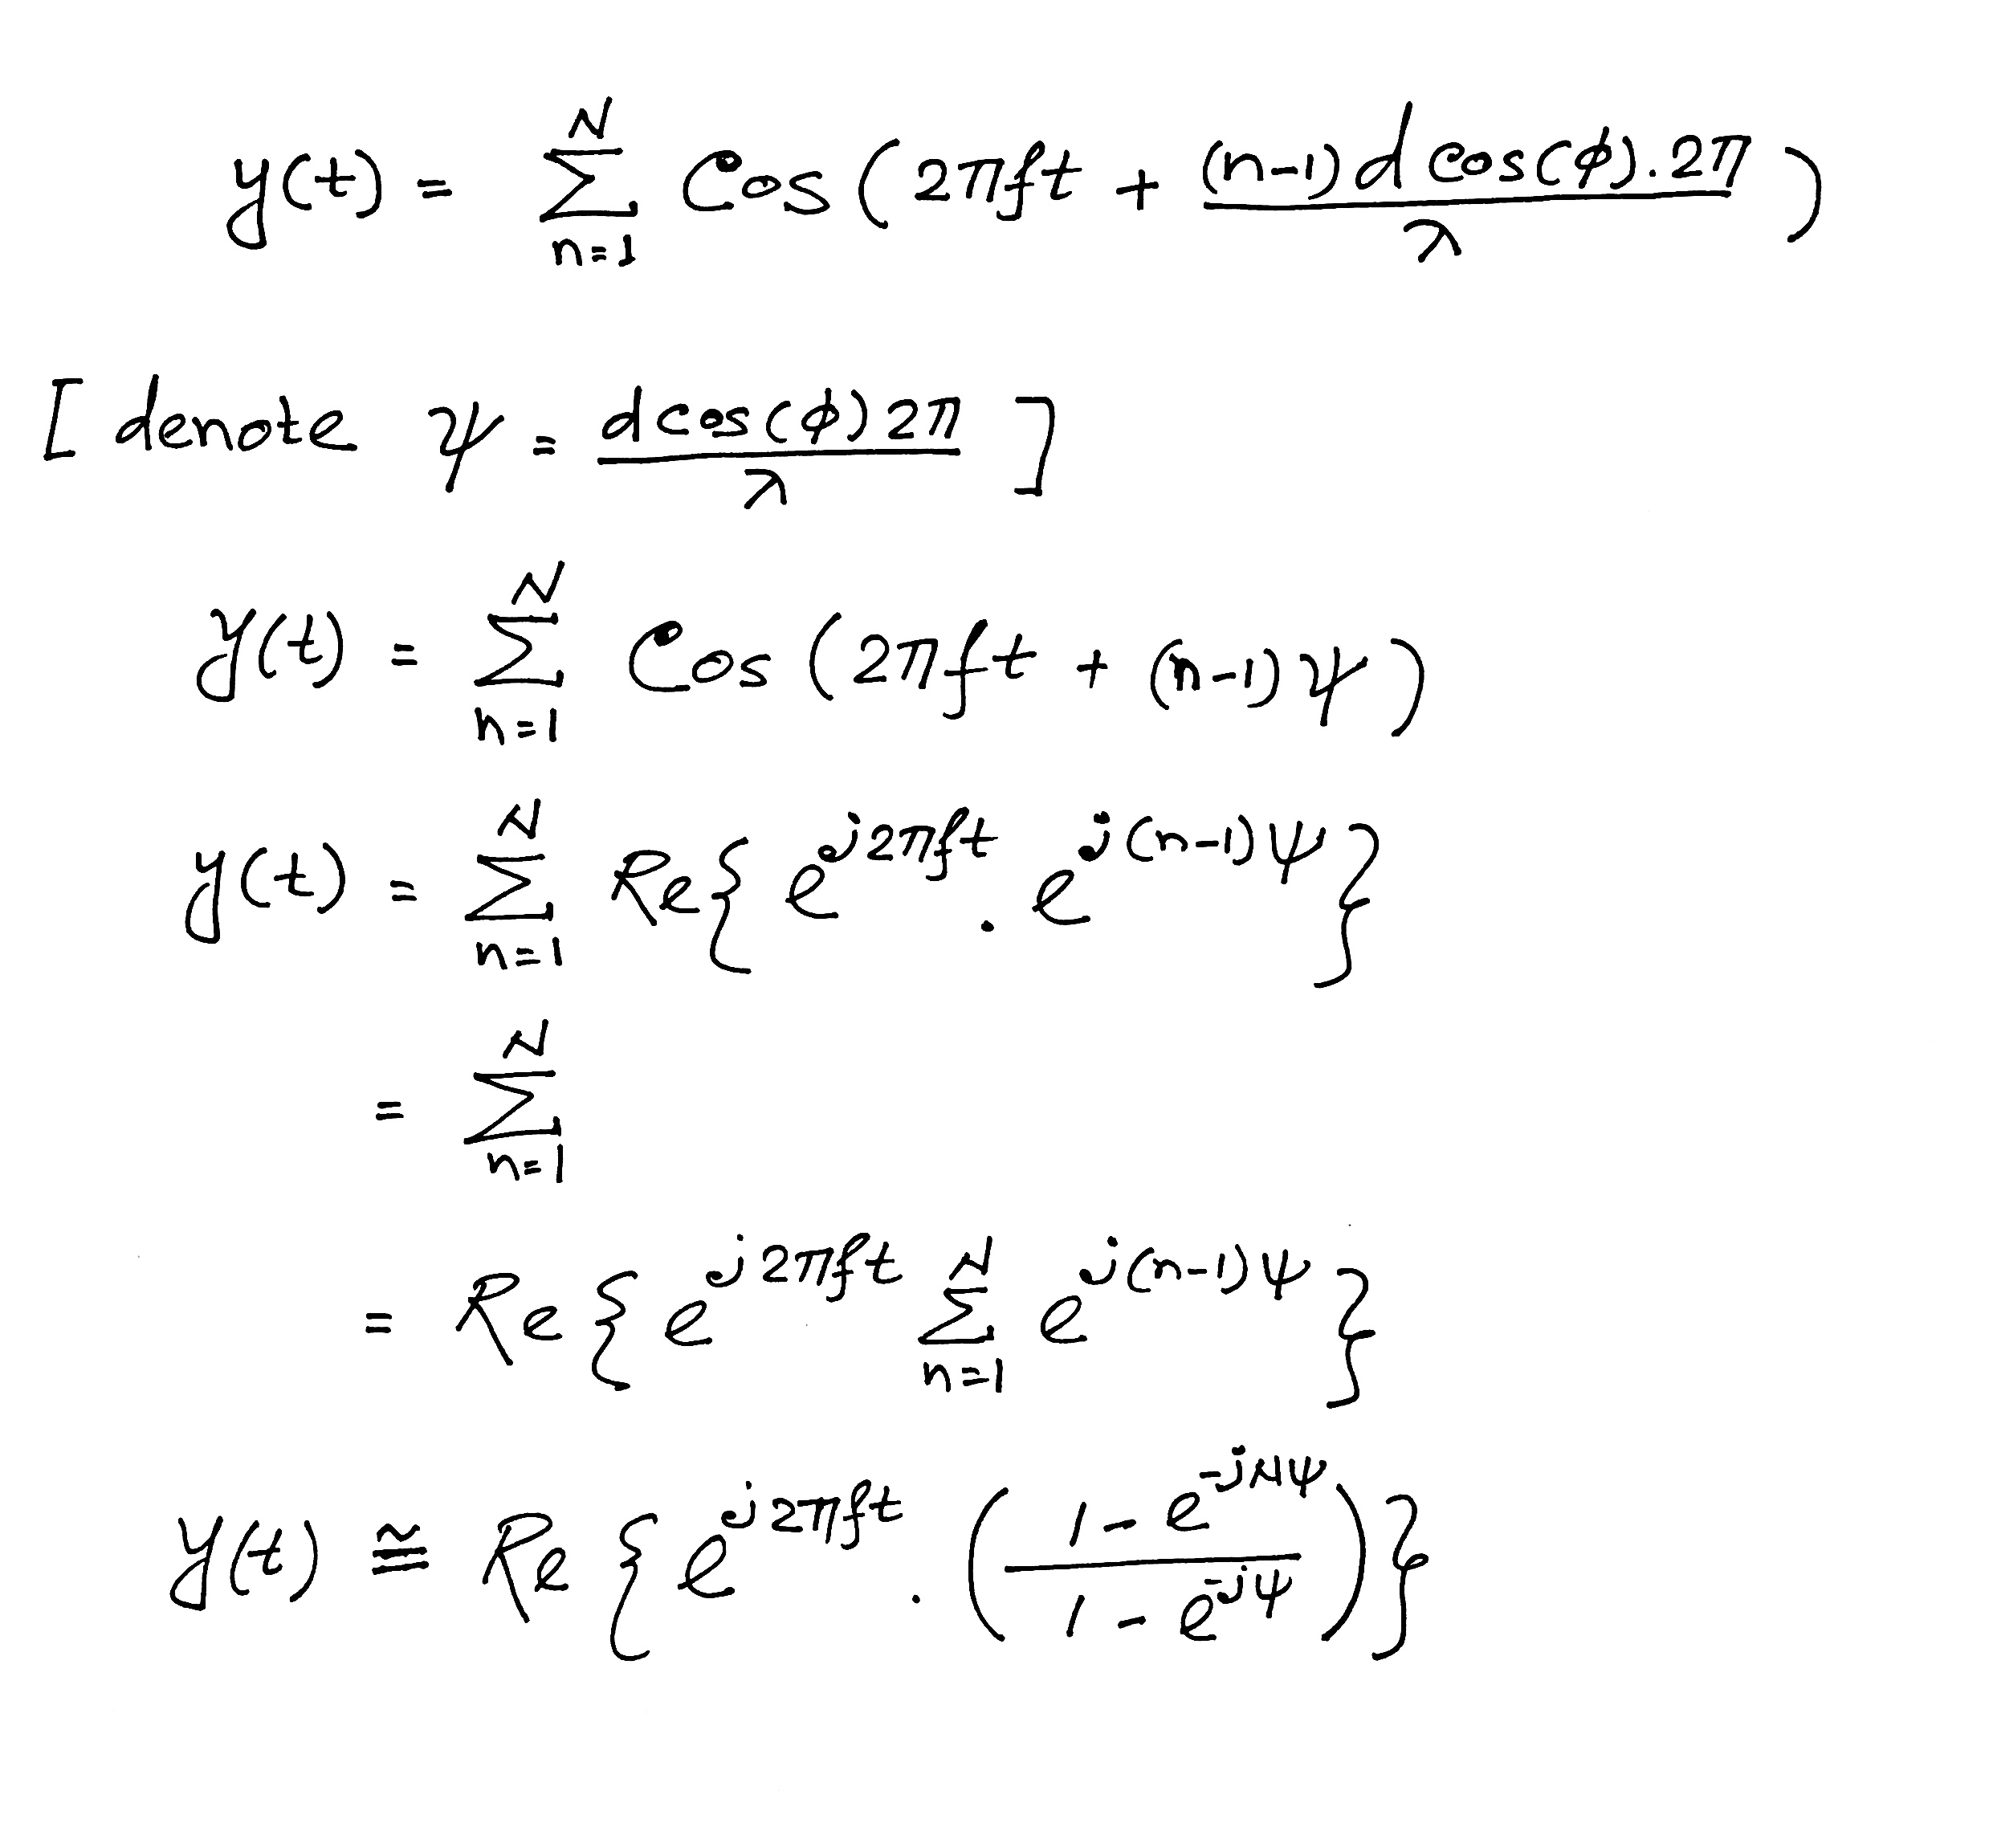 y(t) = \sum_{n=1}^{N} Cos ( 2πft + \frac{(n-1) d cos(φ) . 2π}{λ} )
[ denote ψ = \frac{d cos(φ) 2π}{λ} ]
y(t) = \sum_{n=1}^{N} Cos ( 2πft + (n-1) ψ )
y(t) = \sum_{n=1}^{N} Re { e^{j2πft} . e^{j(n-1)ψ} }
= \sum_{n=1}^{N}
= Re { e^{j2πft} \sum_{n=1}^{N} e^{j(n-1)ψ} }
y(t) ≅ Re { e^{j2πft} . ( \frac{1 - e^{-jNψ}}{1 - e^{-jψ}} ) }